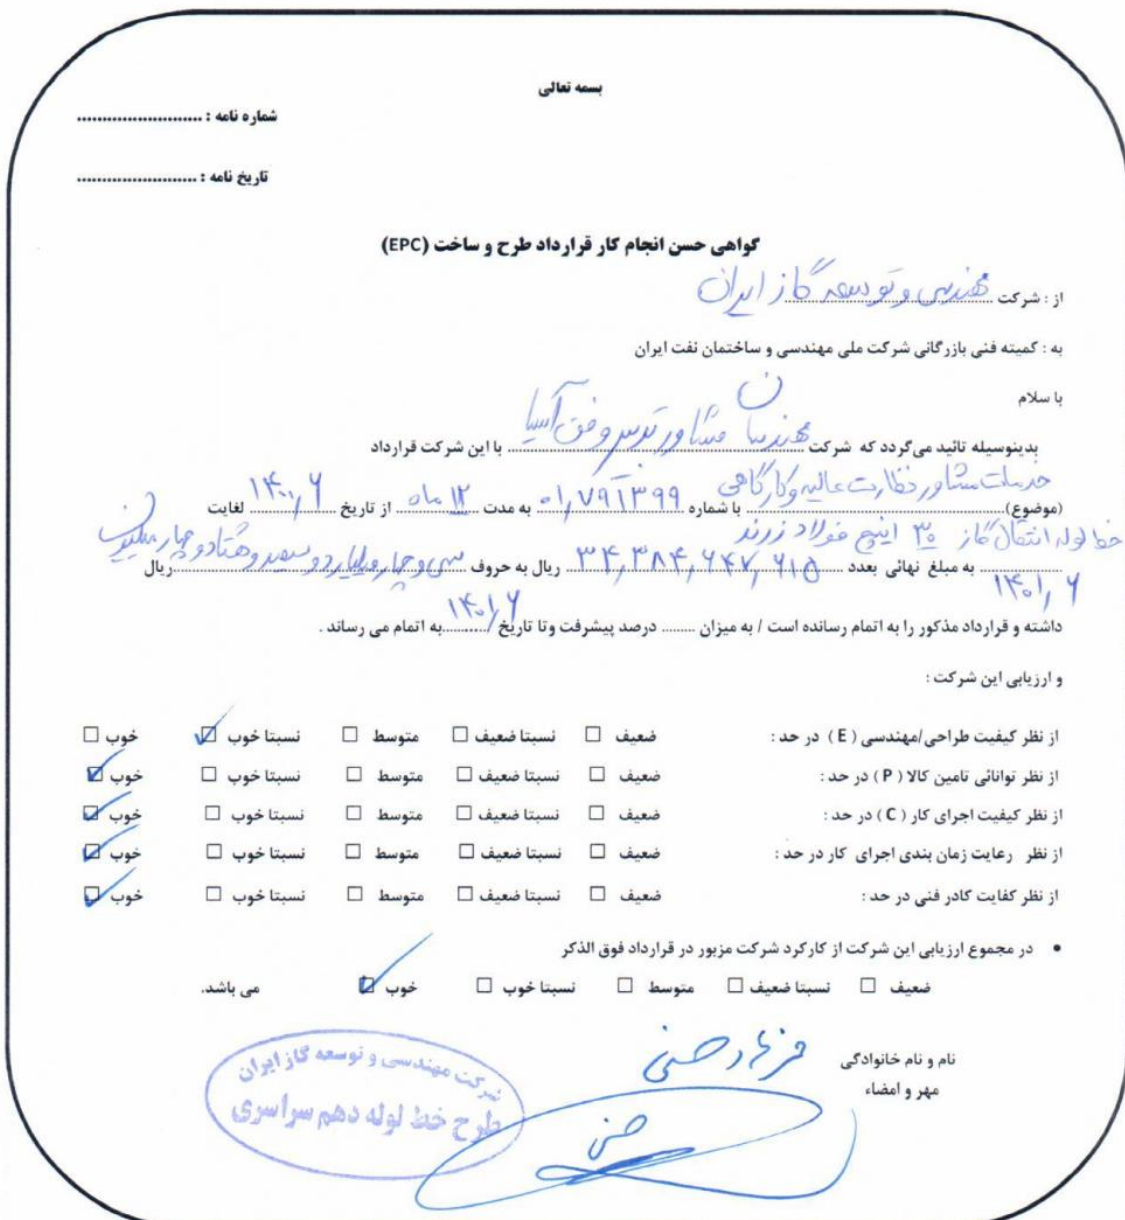 بسمه تعالی
شماره نامه : ..........................
تاریخ نامه : .........................
گواهی حسن انجام کار قرارداد طرح و ساخت (EPC)
از : شرکت مهندسی و توسعه گاز ایران
به : کمیته فنی بازرگانی شرکت ملی مهندسی و ساختمان نفت ایران
با سلام
بدینوسیله تائید می‌گردد که شرکت مهندسان مشاور وفق آسیا با این شرکت قرارداد
(موضوع) خدمات مشاور نظارت عالیه و کارگاهی با شماره ۰۱٫۷۹۱۳۹۹ به مدت ۱۲ ماه از تاریخ ۱۴۰۰٫۶ لغایت
خط لوله انتقال گاز ۳۰ اینچ فولاد زرند
۱۴۰۱٫۶ به مبلغ نهائی بعدد ۳۴٫۳۸۴٫۶۴۷٫۶۱۵ ریال به حروف سی و چهار میلیارد و سیصد و هشتاد و چهار میلیون ریال
داشته و قرارداد مذکور را به اتمام رسانده است / به میزان ........ درصد پیشرفت وتا تاریخ ۱۴۰۱٫۶ به اتمام می رساند .
و ارزیابی این شرکت :
از نظر کیفیت طراحی/مهندسی ( E ) در حد : ضعیف ☐ نسبتا ضعیف ☐ متوسط ☐ نسبتا خوب ☑ خوب ☐
از نظر توانائی تامین کالا ( P ) در حد : ضعیف ☐ نسبتا ضعیف ☐ متوسط ☐ نسبتا خوب ☐ خوب ☑
از نظر کیفیت اجرای کار ( C ) در حد : ضعیف ☐ نسبتا ضعیف ☐ متوسط ☐ نسبتا خوب ☐ خوب ☑
از نظر رعایت زمان بندی اجرای کار در حد : ضعیف ☐ نسبتا ضعیف ☐ متوسط ☐ نسبتا خوب ☐ خوب ☑
از نظر کفایت کادر فنی در حد : ضعیف ☐ نسبتا ضعیف ☐ متوسط ☐ نسبتا خوب ☐ خوب ☑
• در مجموع ارزیابی این شرکت از کارکرد شرکت مزبور در قرارداد فوق الذکر
ضعیف ☐ نسبتا ضعیف ☐ متوسط ☐ نسبتا خوب ☐ خوب ☑ می باشد.
نام و نام خانوادگی فرهاد حسنی
مهر و امضاء
شرکت مهندسی و توسعه گاز ایران
طرح خط لوله دهم سراسری